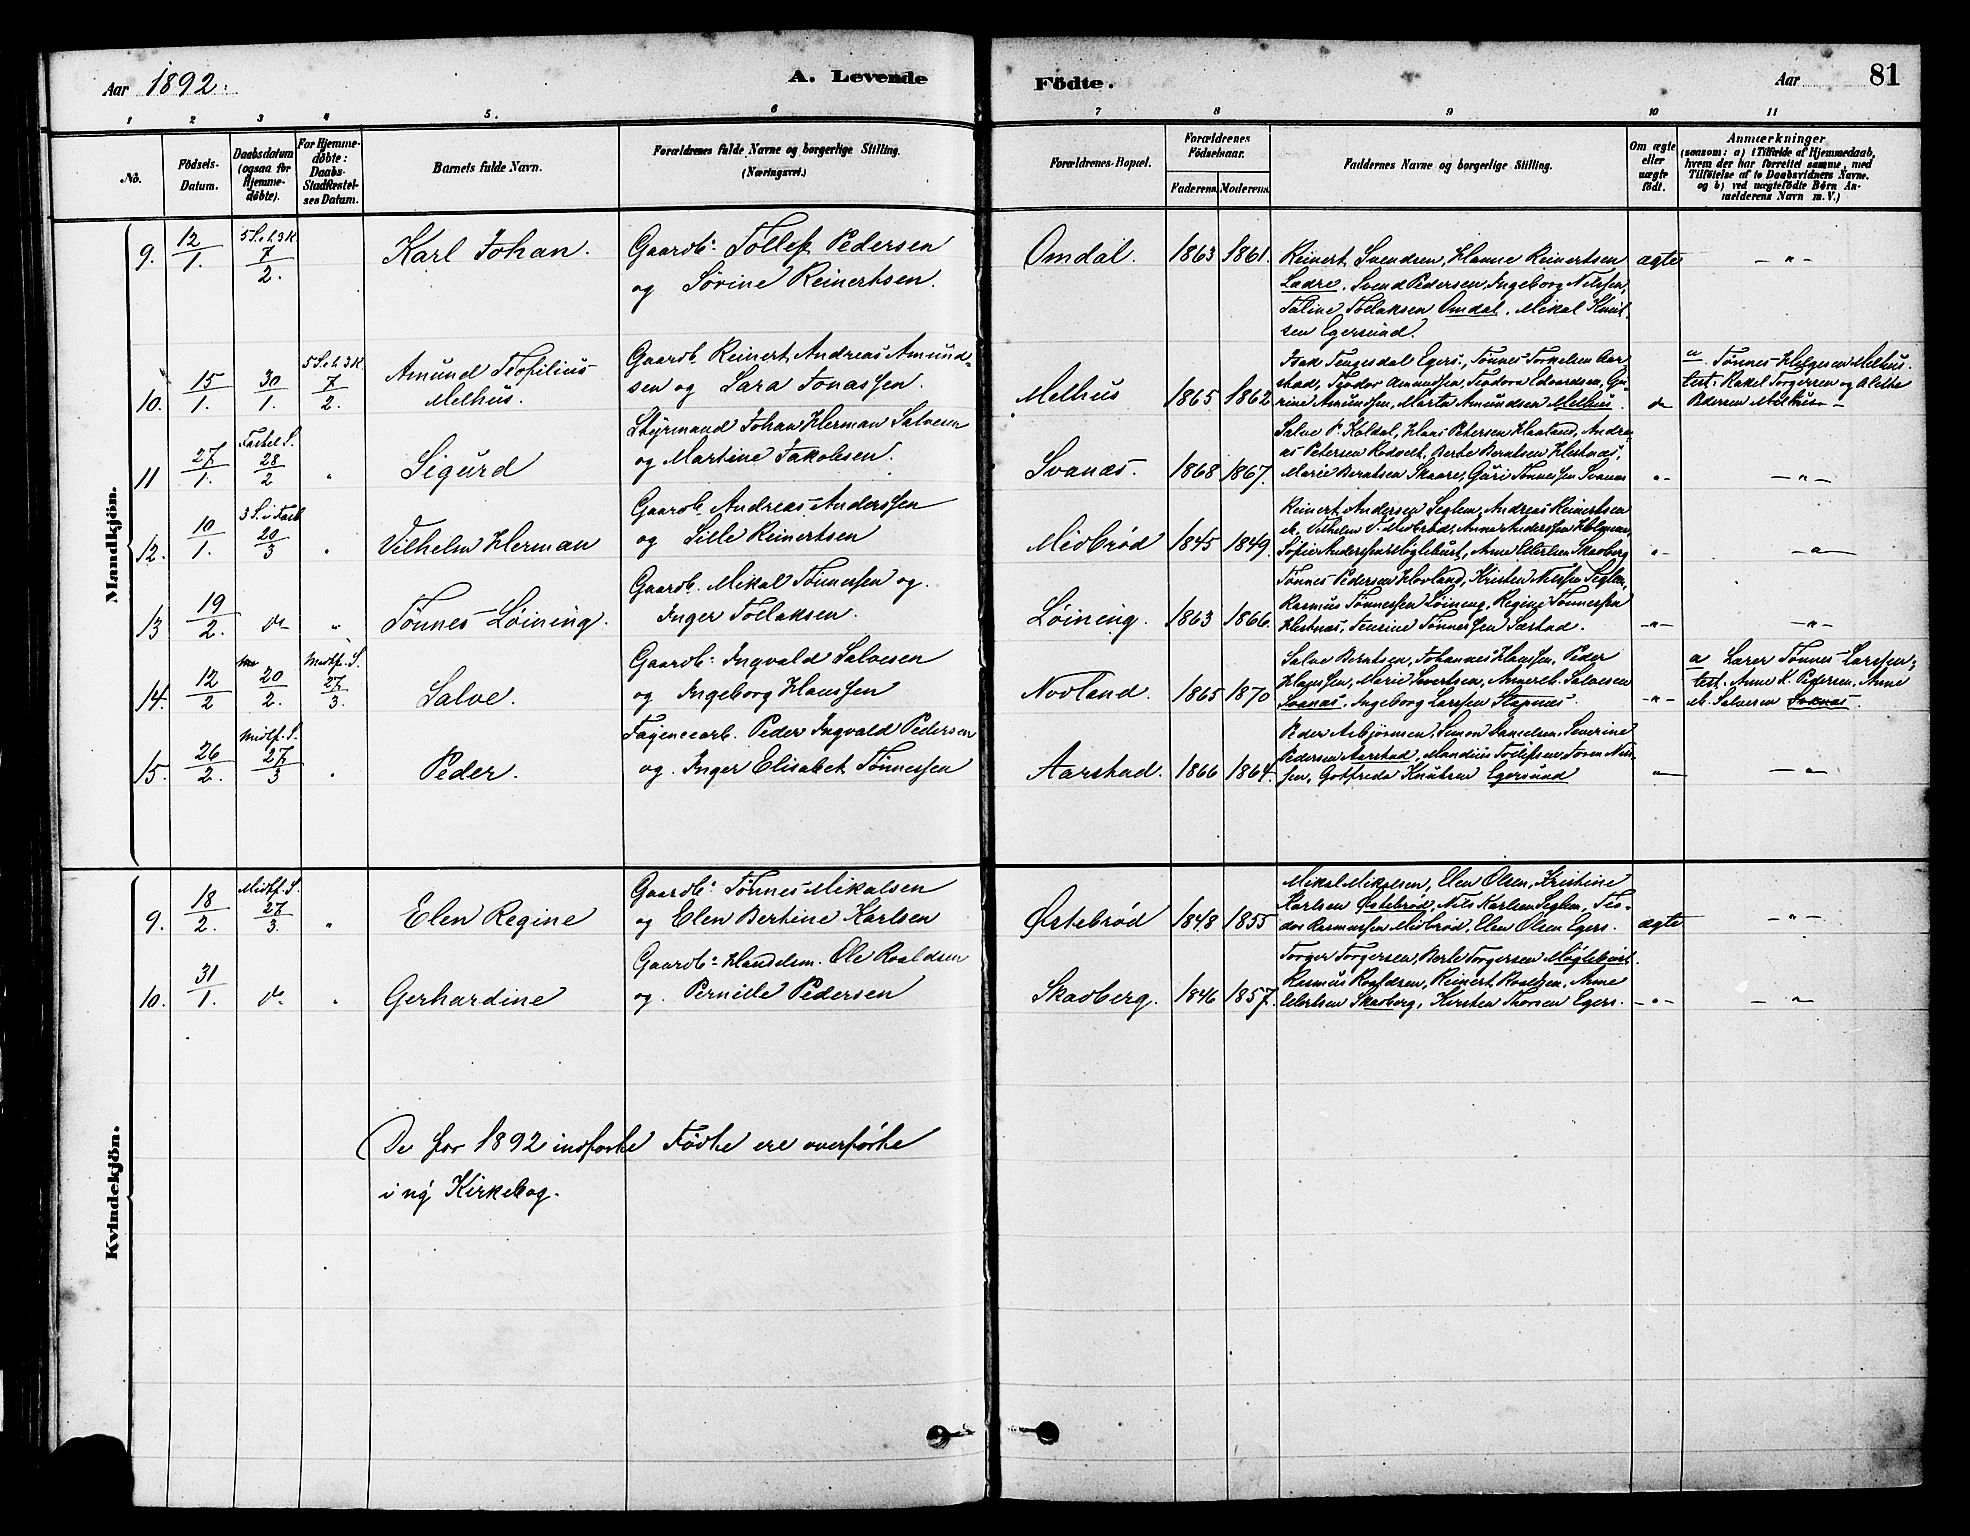 Aar 1892. A. Levende Födte. Aar 81
1 2 3 4 5. 6 7 8 9 10 11
No. Födsels-Datum. Daabsdatum (ogsaa for Hjemmedøbte). For Hjemmedøbte: Daabs-Stadfæstelses Datum. Barnets fulde Navn. Forældrenes fulde Navne og borgerlige Stilling. (Næringsvei.) Forældrenes-Bopæl. Forældrenes Födselsaar. Faderens. Moderens. Faddernes Navne og borgerlige Stilling. Om ægte eller uægte født. Anmærkninger (saasom: a) i Tilfælde af Hjemmedaab, hvem der har forrettet samme, med Tilføielse af to Daabsvidners Navne. og b) ved uægtefödte Börn Anmelderens Navn m. V.)
Mandkjön.
9. 12/1. 5 S. e. h. 3 K. 7/2. Karl Johan. Gaardb. Tollef Pedersen
og Sørine Reinertsen.
Omdal. 1863 1861. Reinert Svendsen, Hanne Reinertsen ægte — " —
Ladre. Svend Pedersen, Ingeborg Nilssen,
Taline Tollaksen Omdal. Mikal Knut-
sen Egersund.
10. 15/1. 30/1. 5 S. e. h. 3 K. 7/2. Amund Teofilius
Melhus.
Gaardb. Reinert Andreas Amund-
sen og Sara Jonassen.
Melhus 1865 1862 Isak Tengesdal Egers., Tønnes Torkelsen Aar-
stad, Teodor Amundsen, Teodora Edvardsen, Gu-
rine Amundsen, Marta Amundsen Melhus. do
a Tønnes Helgesen Melhus.
test: Rakel Torgersen og Alette
Pedersen Melhus —
11 27/1. Fastel. S. 28/2 " Sigurd Styrmand Johan Herman Salvesen
og Martine Jakobsen.
Svanæs. 1868 1867. Salve P. Koldal, Hans Petersen Haaland, Andre-
as Petersen Rodvelt, Berte Berntsen Hestnæs,
Marie Berntsen Skaare, Guri Tønnessen Svanæs " — — " —
12. 10/1. 3 S. i Fast. 20/3 " Vilhelm Herman Gaardb. Andreas Anderssen
og Sille Reinertsen
Midbrød 1845 1849. Reinert Andersen Seglem, Andreas Reinertsen
Sofie Anderssen Møglebust, Anne Eilertsen Skadberg " — — " —
13 19/2. do " Tönnes Løining. Gaardb. Mikal Tönnessen og
Inger Tollaksen.
Løining. 1863 1866. Tønnes Pedersen Hovland, Kristen Nilssen Seglem,
Rasmus Tønnessen Løining, Regine Tønnessen
Hestnæs, Teurine Tønnessen Sæstad. — " — — " —
14. 12/2 20/2. Midtf. S. 27/3. Salve. Gaardb. Ingvald Salvesen
og Ingeborg Hanssen
Novland. 1865 1870 Salve Berntsen, Johannes Hanssen, Peder
Hanssen, Marie Sivertsen, Anne M. Salvesen
Svanæs, Ingeborg Larssen Stapnæs. " —
a Lærer Tønnes Larssen,
test. Anne K. Pedersen, Anne
M. Salvesen Svanæs.
15. 26/2. Midtf. S. 27/3 " Peder. Fayencearb. Peder Ingvald Pedersen
og Inger Elisabet Tønnessen
Aarstad. 1866 1864. Peder Asbjörnsen, Simon Danielsen, Severine
Pedersen Aarstad, Mandius Tollefsen, Soren Nils-
sen, Gotfreda Knutsen Egersund — " — — " —
Kvindekjön.
9. 18/2. Midtf. S. 27/3. " Elen Regine Gaardb. Tönnes Mikalsen
og Elen Bertine Karlsen
Østebrød 1848 1855 Mikal Mikalsen, Elen Olsen, Kristine
Karlsen Østebrød, Nils Karlsen Seglem, Teo-
dor Rasmussen Midbrød, Elen Olsen Egers. ægte — " —
10. 31/1. do " Gerhardine Gaardb. Handelsm. Ole Roaldsen
og Pernille Pedersen
Skadberg. 1846 1857. Torger Torgersen, Berte Torgersen Møglebust.
Rasmus Roaldsen, Reinert Roaldsen, Anne
Eilertsen Skadberg, Kirsten Thorsen Egers. — " — — " —
De for 1892 indførte Fødte ere overførte
i ny Kirkebog.